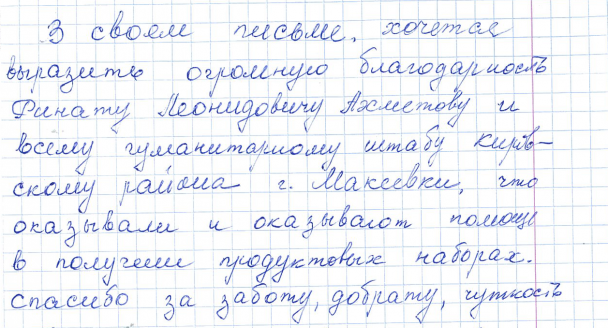 З своем письме, хочется
выразить огромную благодарность
Ринату Леонидовичу Ахметову и
всему гуманитарному штабу Киров-
скому района г. Макеевки, что
оказывали и оказывают помощь
в получении продуктовых наборах.
Спасибо за заботу, доброту, чуткость